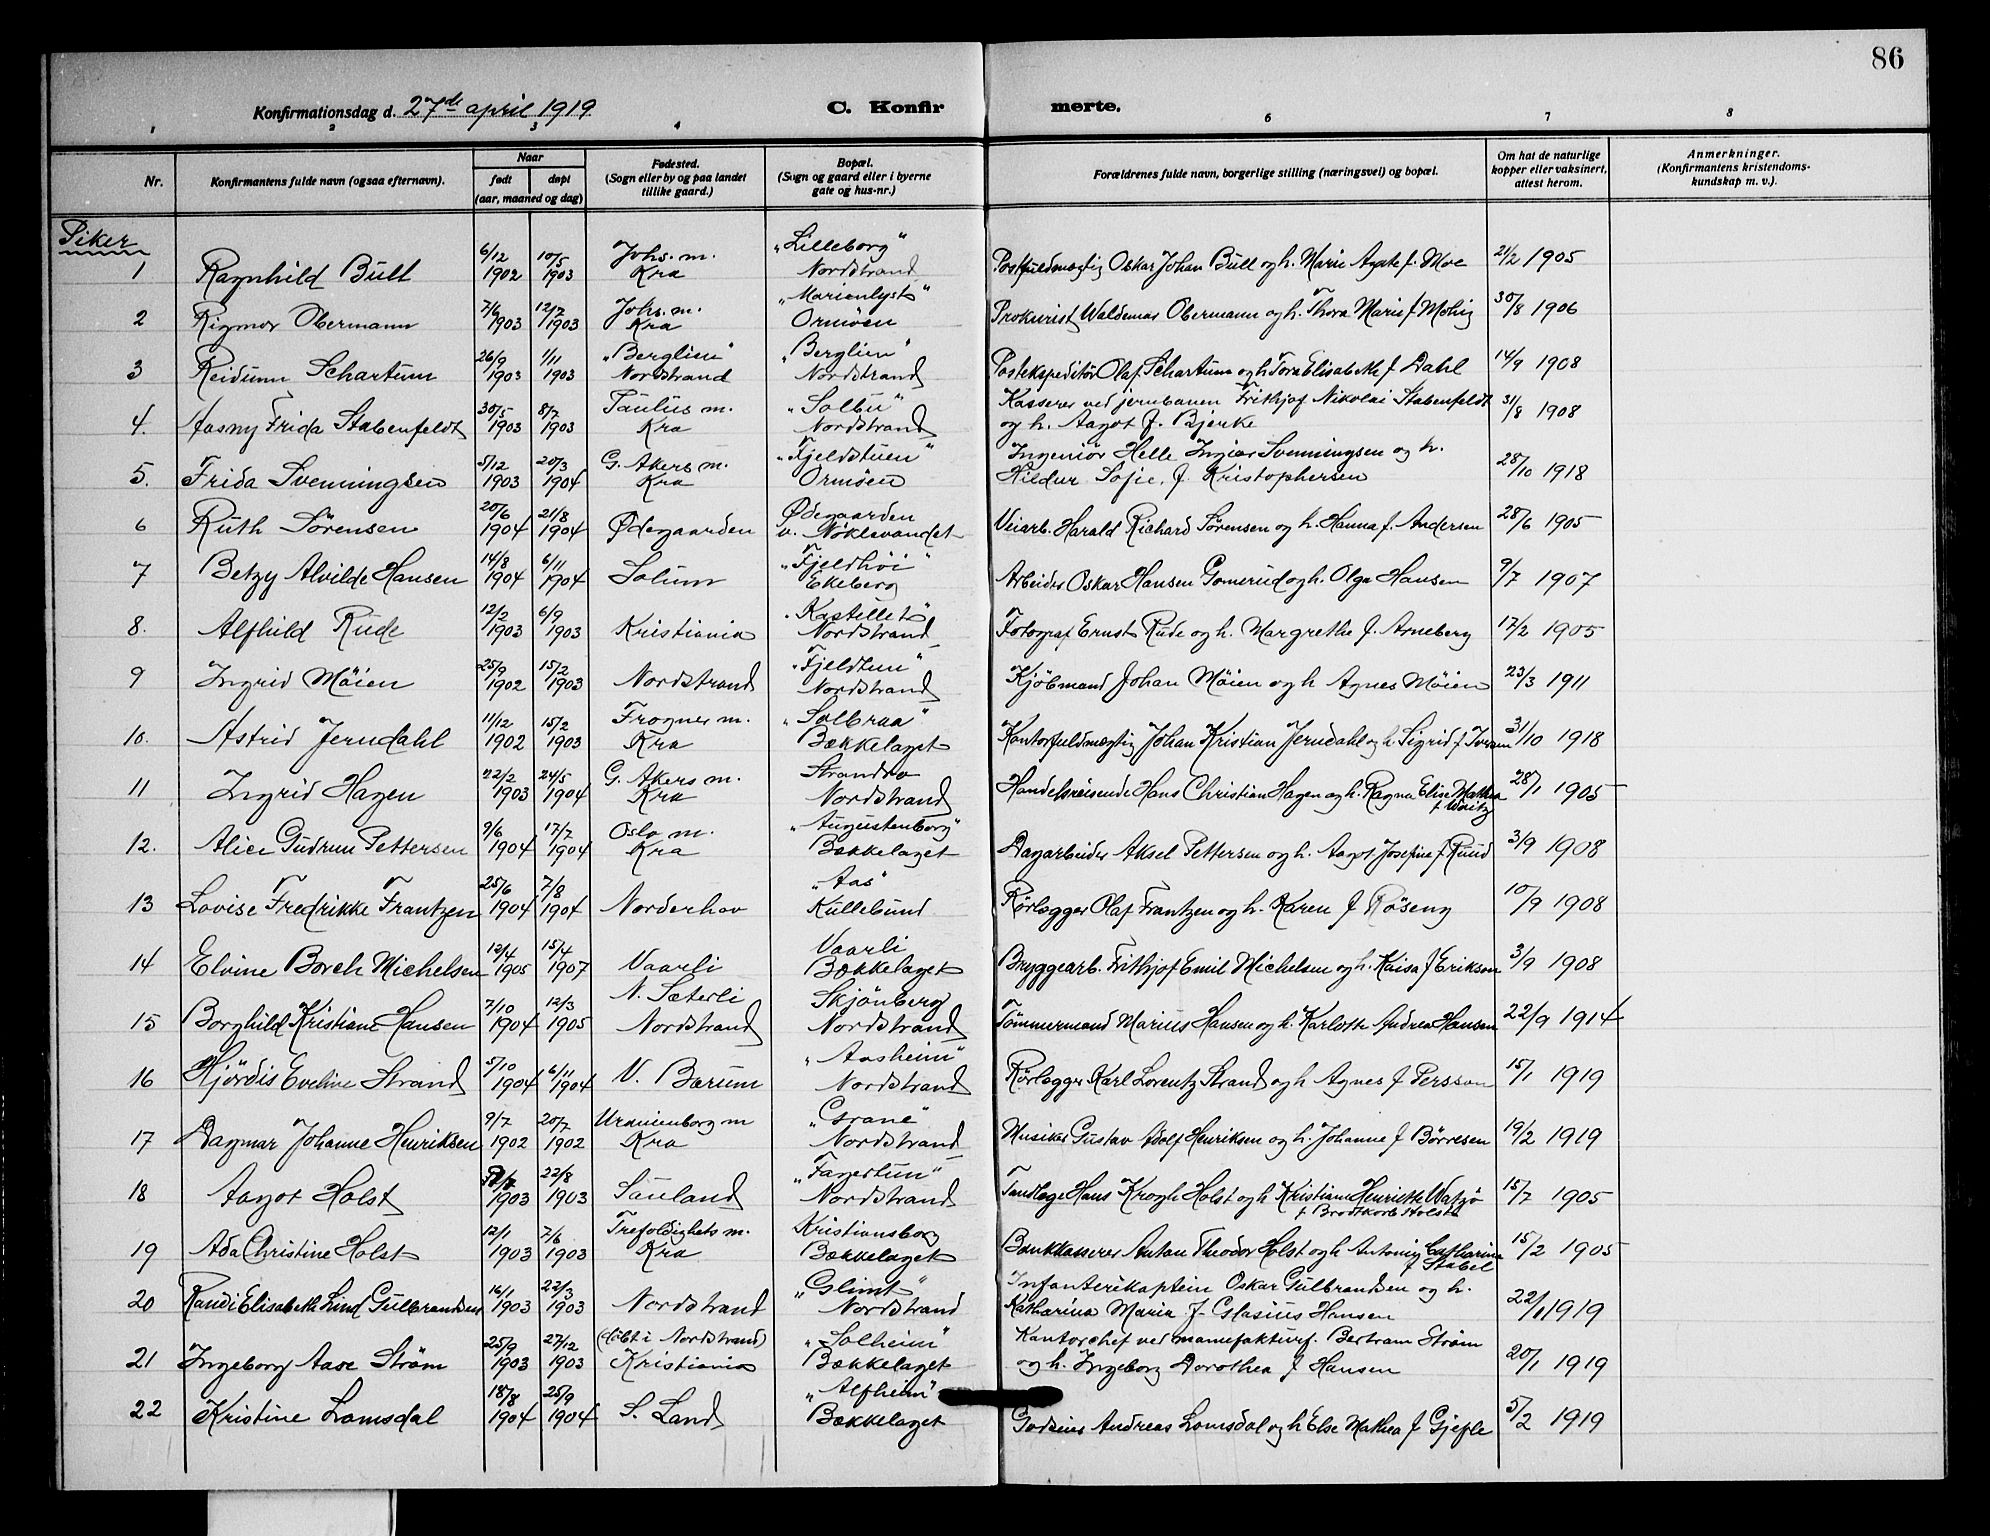 86
Konfirmationsdag d. 27de april 1919 C. Konfirmerte.
1 2 3 4 6 7 8
Nr. Konfirmantens fulde navn (ogsaa efternavn). Naar født døpt (aar, maaned og dag) Fødested. (Sogn eller by og paa landet tillike gaard.) Bopæl. (Sogn og gaard eller i byerne gate og hus-nr.) Forældrenes fulde navn, borgerlige stilling (næringsvei) og bopæl. Om hat de naturlige kopper eller vaksinert, attest herom. Anmerkninger. (Konfirmantens kristendomskundskap m. v.).
Piker
1 Ragnhild Bull 6/12 1902 10/5 1903 Johs. m. Kra "Lilleborg" Nordstrand Postfuldmægtig Oskar Johan Bull og h. Marie Agate f. Moe 21/2 1905
2 Rigmor Obermann 7/6 1903 12/7 1903 Johs. m. Kra "Marienlyst" Ormöen Prokurist Waldemar Obermann og h. Thora Marie f. Mohig 30/8 1906
3 Reidunn Schartum 26/9 1903 1/11 1903 "Berglien" Nordstrand "Berglien" Nordstrand Postekspeditör Olaf Schartum og h Tora Elisabeth f Dahl 14/9 1908
4. Aasny Frida Stabenfeldt 30/5 1903 8/7 1903 Paulus m. Kra "Solbu" Nordstrand Kasserer ved jernbanen Frithjof Nikolai Stabenfeldt og h. Aagot f. Bjerke 31/8 1908
5. Frida Svenningsen 5/12 1903 20/3 1904 G. Akers m. Kra "Fjeldstuen" Ormöen Ingeniör Helle Ingier Svenningsen og h. Hildur Sofie, f. Kristophersen 28/10 1918
6 Ruth Sörensen 20/6 1904 21/8 1904 Ødegaarden Ødegaarden v. Nöklevandet Veiarb. Harald Richard Sörensen og h. Hanna f. Andersen 28/6 1905
7 Betzy Alvilde Hansen 14/8 1904 6/11 1904 Solum "Fjeldhöi" Ekeberg Arbeider Oskar Hansen Gomerud og h. Olga Hansen 9/7 1907
8. Alfhild Rude 12/2 1903 6/9 1903 Kristiania "Kastellet" Nordstrand Fotograf Ernst Rude og h. Margrethe f. Arneberg 17/2 1905
9 Ingrid Möien 25/9 1902 15/2 1903 Nordstrand "Fjeldtun" Nordstrand Kjöbmand Johan Möien og h Agnes Möien 23/3 1911
10. Astrid Jerndahl 11/12 1902 15/2 1903 Frogner m. Kra "Solbraa" Bækkelaget Kontorfuldmægtig Johan Kristian Jerndahl og h. Sigrid f. 31/10 1918
11 Ingrid Hagen 22/2 1903 24/5 1904 G. Akers m. Kra Strandro Nordstrand Handelsreisende Hans Christian Hagen og h. Ragna Elise Mathea f. 28/1 1905
12. Alice Gudrun Pettersen 9/6 1904 17/7 1904 Oslo m. Kra "Augustenborg" Bækkelaget Dagarbeider Aksel Pettersen og h. Aagot Josefine f. Ruud 3/9 1908
13 Lovise Fredrikke Frantzen 25/6 1904 7/8 1904 Norderhov "Aas" Kullebund Rörlægger Olaf Frantzen og h. Karen f Röseng 10/9 1908
14 Elvine Borch Michelsen 12/4 1905 15/4 1907 Vaarli Vaarli Bækkelaget Bryggearb. Frithjof Emil Michelsen og h. Kaisa f Erikson 3/9 1908
15 Borghild Kristiane Hansen 7/10 1904 12/3 1905 N. Sæterli Nordstrand Skjönberg Nordstrand Tömmermand Marius Hansen og h. Karlotte Andrea Hansen 22/9 1914
16 Hjördis Eveline Strand 5/10 1904 6/11 1904 V. Bærum "Aasheim" Nordstrand Rörlægger Karl Lorentz Strand og h Agnes f Persson 15/1 1919
17 Dagmar Johanne Henriksen 9/7 1902 20/7 1902 Uranienborg m Kra "Grane" Nordstrand Musiker Gustav Adolf Henriksen og h. Johanne f Börresen 19/2 1919
18 Aagot Holst 1903 22/8 1903 Sauland "Fagertun" Nordstrand Tandlæge Hans Krogh Holst og h Kristiane Henriette f. Brodtkorb Holst 15/7 1905
19 Ada Christine Holst 12/1 1903 7/6 1903 Trefoldighets m. Kra Kristiansborg Bækkelaget Bankkasserer Anton Theodor Holst og h Antonie Catharina f Stabel 15/2 1905
20 Randi Elisabeth Lind Gulbrandsen 16/1 1903 22/3 1903 Nordstrand "Glimt" Nordstrand Infanterikaptein Oskar Gulbrandsen og h. Katharina Maria f. Clasius Hansen 22/1 1919
21 Ingeborg Aase Ström 25/9 1903 27/12 1903 (döbt i Nordstrand) Kristiania "Solheim" Bækkelaget Kontorchef ved manufakturf. Bertram Ström og h. Ingeborg Dorothea f Hansen 20/1 1919
22 Kristine Lomsdal 18/8 1904 25/9 1904 S. Land "Alfheim" Bækkelaget Godseier Andreas Lomsdal og h Else Mathea f Gjefle 5/2 1919